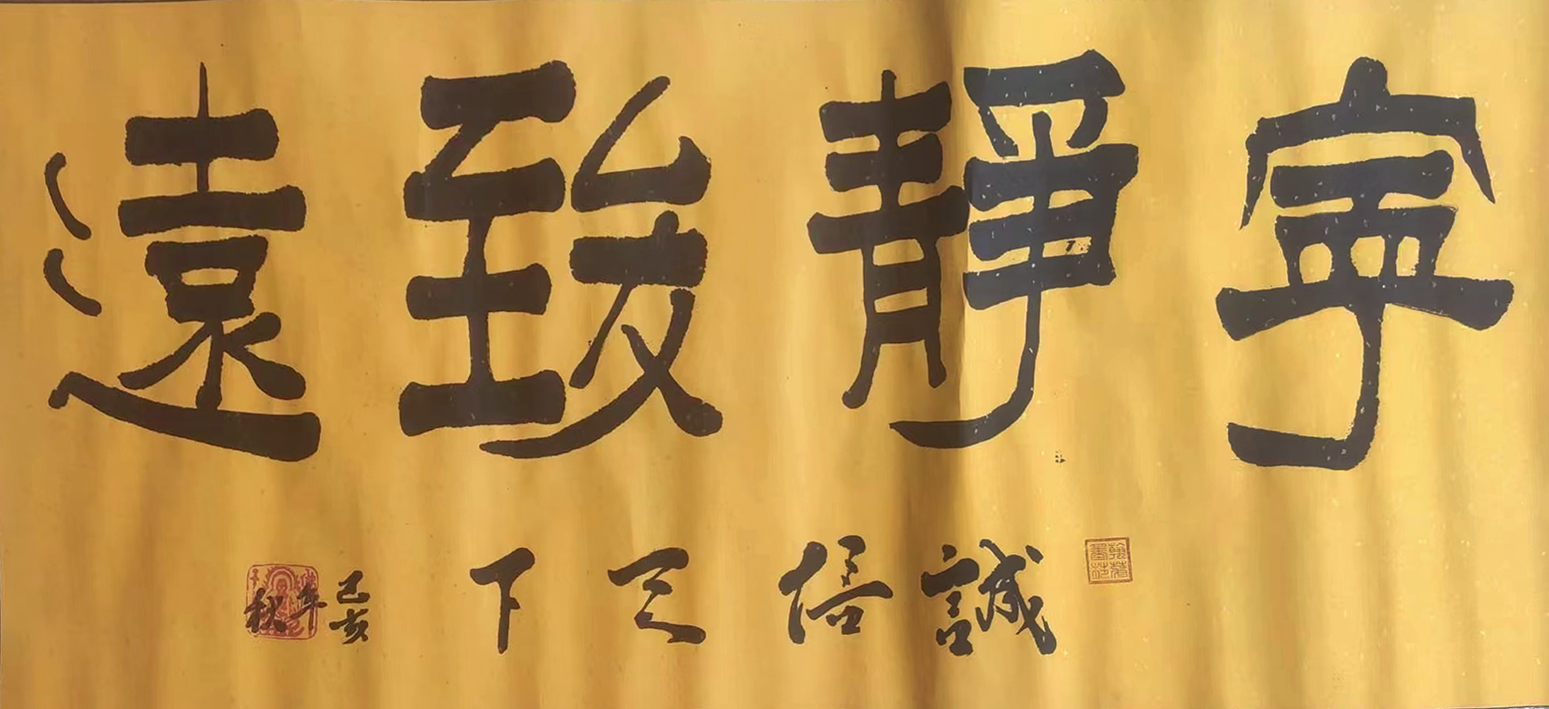 寧靜致遠
誠信天下
己亥
年
秋